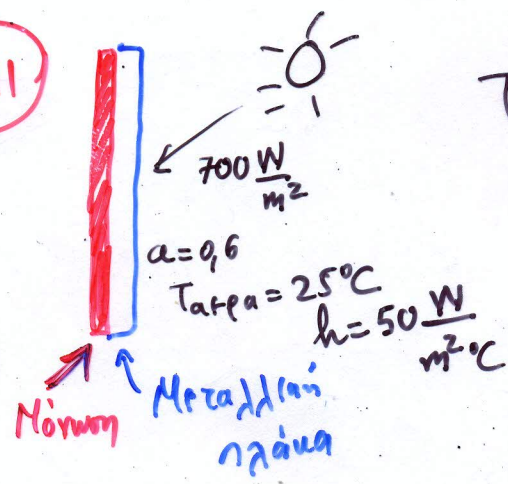 1
700 W/m²
a=0,6
Ταερα = 25°C
h=50 W/m²°C
Μόνωση
Μεταλλική
πλάκα